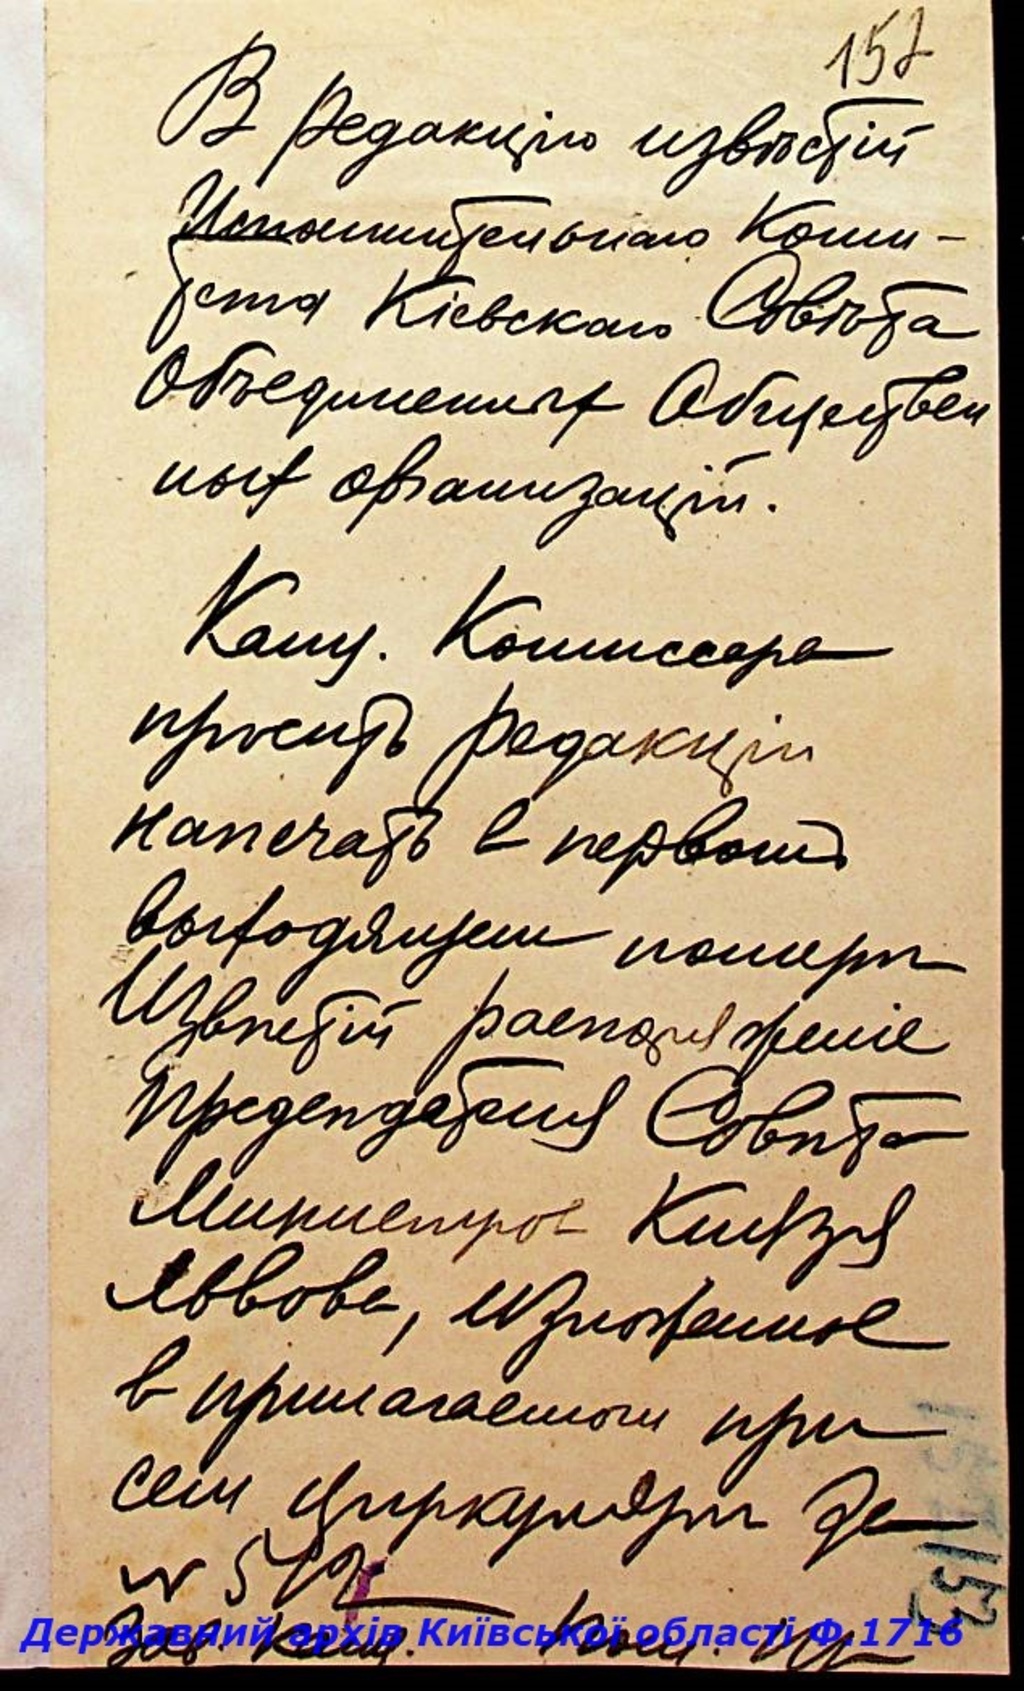 157
В редакцію извѣстій
Исполнительнаго Коми-
тета Кіевскаго Совѣта
Объединенных Обществен
ных организацій.
Канц. Комиссара
просить редакціи
напечать в первомъ
выходящем номерѣ
Извѣстій распоряженіе
Предсѣдателя Совѣта
Министров Князя
Львова, изложенное
в прилагаемом при
сем циркулярѣ за
№ 512
153
Зав. Канц. Ком.
Державний архів Київської області Ф.1716